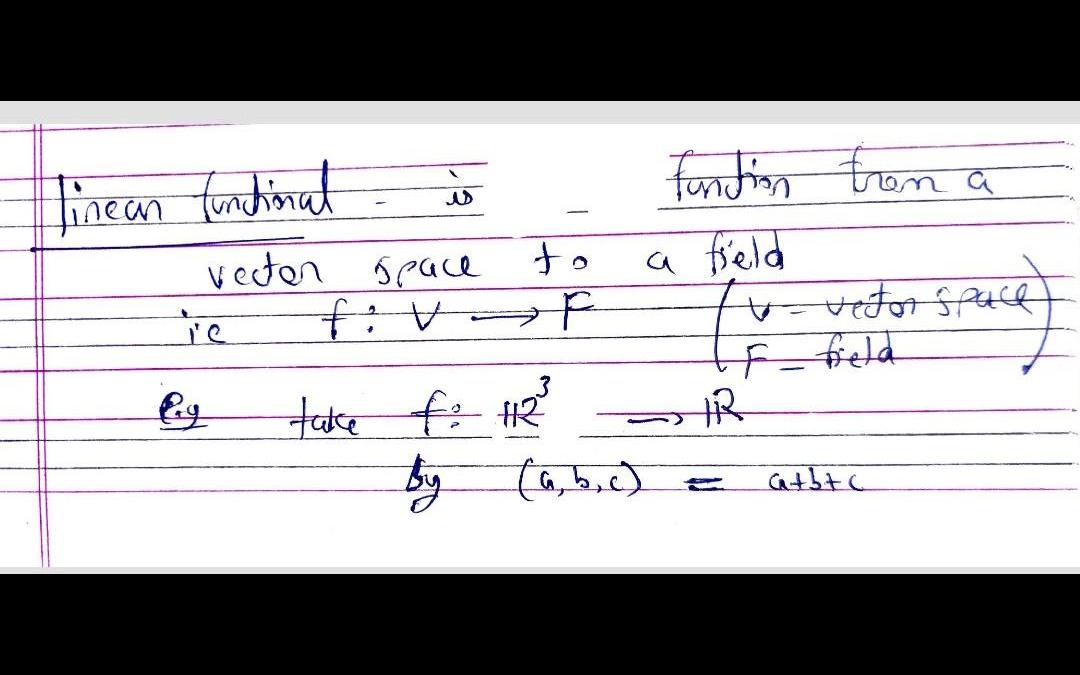 linear functional - is - function from a
vector space to a field
ie f: V → F (V - vector space
F - field)
e.g take f: ℝ³ → ℝ
by (a,b,c) = a+b+c